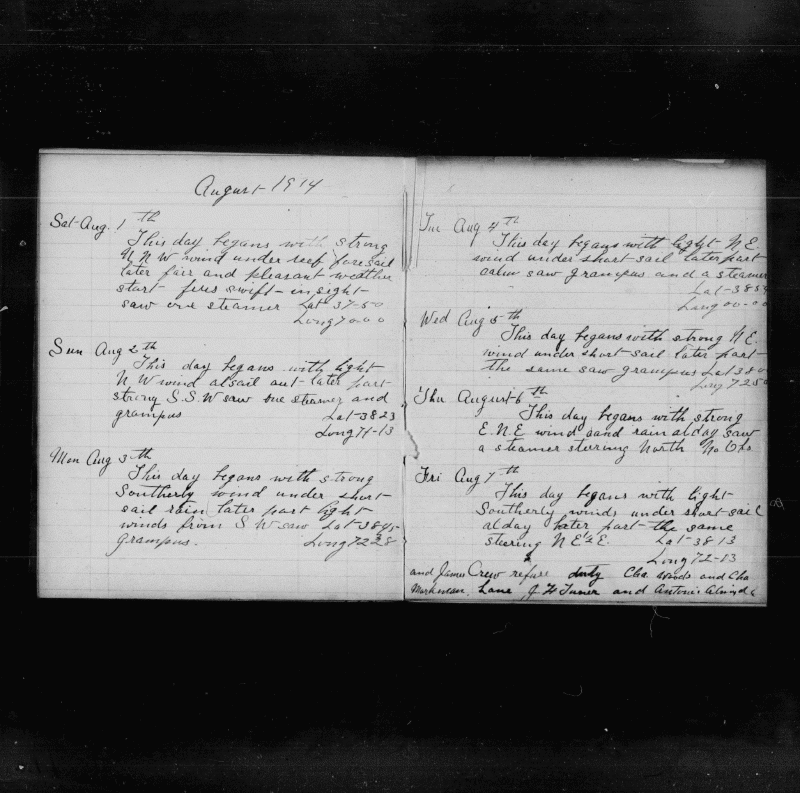 August 1914
Sat Aug. 1th
This day begans with strong
N N W wind under reef foresail
later fair and pleasant weather
start fires swift in sight
saw one steamer Lat 37-50
Long 70 00
Sun Aug 2th
This day begans with light
N W wind alsail aut later part
strong S.S.W saw one steamer and
grampus Lat-3823
Long 71-13
Mon Aug 3th
This day begans with strong
Southerly wind under short
sail rain later part light
winds from S W saw Lat-3845
grampus. Long 7228
Tue Aug 4th
This day begans with light N.E.
wind under short sail later part
calm saw grampus and a steamer
Lat-3854
Long 00-00
Wed Aug 5th
This day begans with strong N E.
wind under short sail later part
the same saw grampus Lat 380
Long 725
Thu August 6th
This day begans with strong
E.N.E wind aand rain alday saw
a steamer steering North No Obs
Fri Aug 7th
This day begans with light
Southerly winds under short sail
alday later part the same
steering N E ½ E. Lat-38 13
Long 72-13
and James Crew refuse duty Cha. Winds and Cha
Lane J H Turner and Antonio